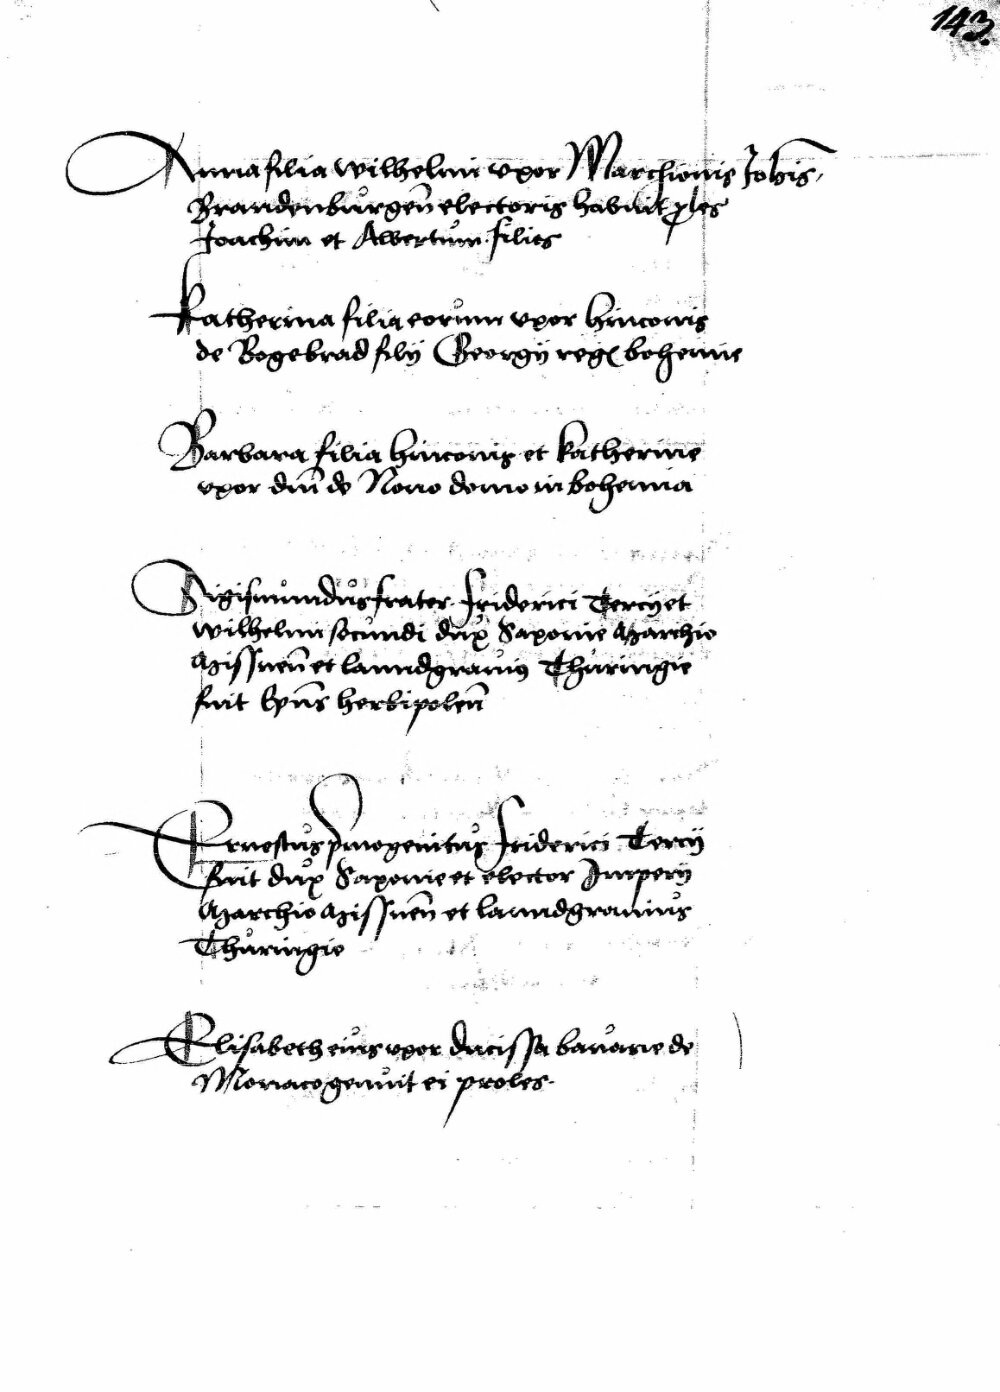 143.
Anna filia wilhelmi vxor Marchionis Johis
Brandenburgen electoris habuit ples
Joachim et Albertum filios
Katherina filia eorum vxor hinconis
de Bogebrad filij Georgij reg bohemie
Barbara filia hinconis et Katherine
vxor dni de Nouo domo in bohemia
Sigismundus frater Friderici Tercij et
wilhelmi secundi dux Saxonie Marchio
Missnen et lanndgrauius Thuringie
fuit Epus herbipolen
Ernestus pmogenitus Friderici Tercij
fuit dux Saxonie et elector Imperij
Marchio Missnen et lanndgrauius
Thuringie
Elisabeth eius vxor ducissa bauarie de
Monaco genuit ei proles.